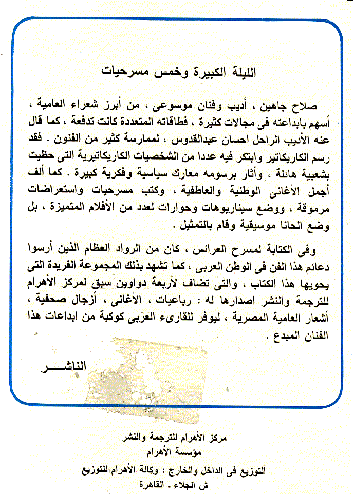 الليلة الكبيرة وخمس مسرحيات
صلاح جاهين ، أديب وفنان موسوعى ، من أبرز شعراء العامية ،
أسهم بابداعته فى مجالات كثيرة ، فطاقاته المتعددة كانت تدفعة ، كما قال
عنه الأديب الراحل احسان عبدالقدوس ، لممارسة كثير من الفنون . فقد
رسم الكاريكاتير وابتكر فيه عددا من الشخصيات الكاريكاتيرية التى حظيت
بشعبية هائلة ، وأثار برسومه معارك سياسية وفكرية كبيرة . كما ألف
أجمل الأغانى الوطنية والعاطفية ، وكتب مسرحيات واستعراضات
مرموقة ، ووضع سيناريوهات وحوارات لعدد من الأفلام المتميزة ، بل
وضع الحانا موسيقية وقام بالتمثيل .
وفى الكتابة لمسرح العرائس ، كان من الرواد العظام الذين أرسوا
دعائم هذا الفن فى الوطن العربى ، كما تشهد بذلك المجموعة الفريدة التى
يحويها هذا الكتاب ، والتى تضاف لأربعة دواوين سبق لمركز الأهرام
للترجمة والنشر اصدارها له : رباعيات ، الأغانى ، أزجال صحفية ،
أشعار العامية المصرية ، ليوفر للقارىء العربى كوكبة من ابداعات هذا
الفنان المبدع .
الناشـــر
مركز الأهرام للترجمة والنشر
مؤسسة الأهرام
التوزيع فى الداخل والخارج : وكالة الأهرام للتوزيع
ش الجلاء - القاهرة